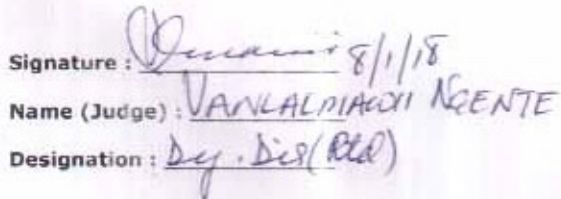 Signature : 8/1/18
Name (Judge) : VANLALMAWII NGENTE
Designation : Dy. Dir (Rtd)